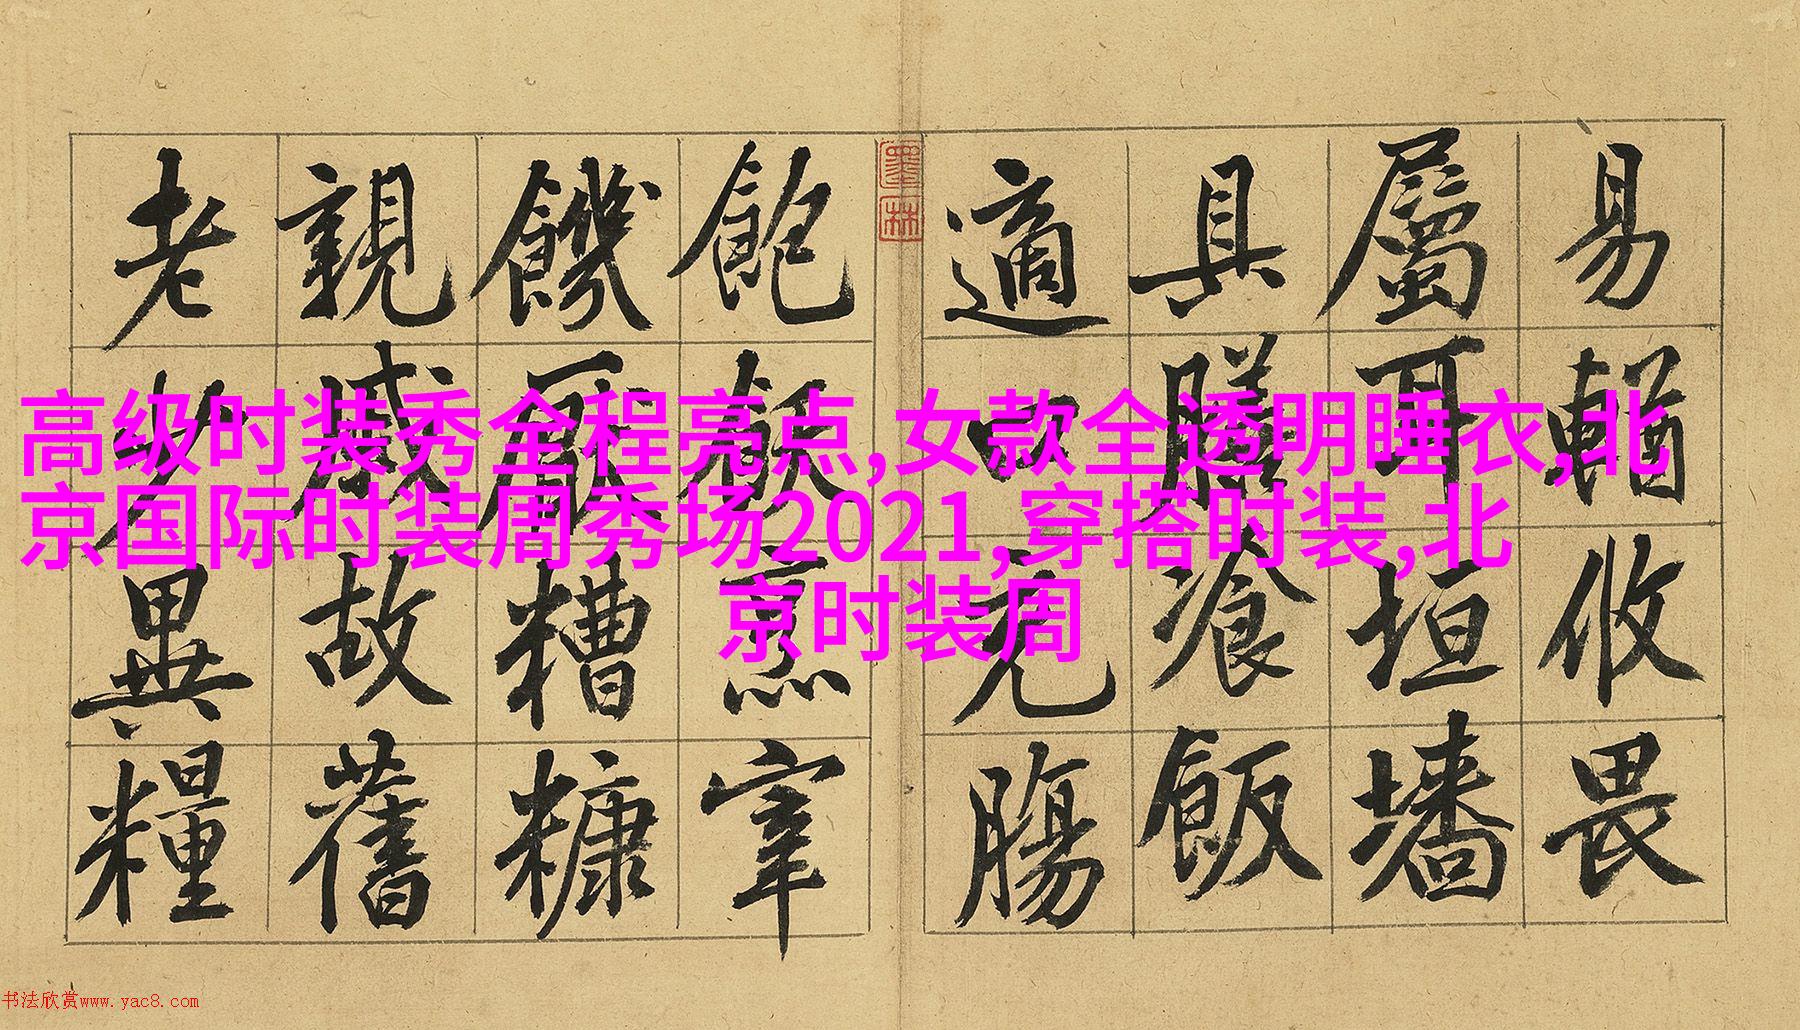 易輶攸畏
屬耳垣墻
具膳湌飯
適口充腸
飽飫烹宰
饑厭糟糠
親戚故舊
老少異糧
墨林
高级时装秀全程亮点,女款全透明睡衣,北
京国际时装周秀场2021,穿搭时装,北
京时装周
书法欣赏www.yac8.com